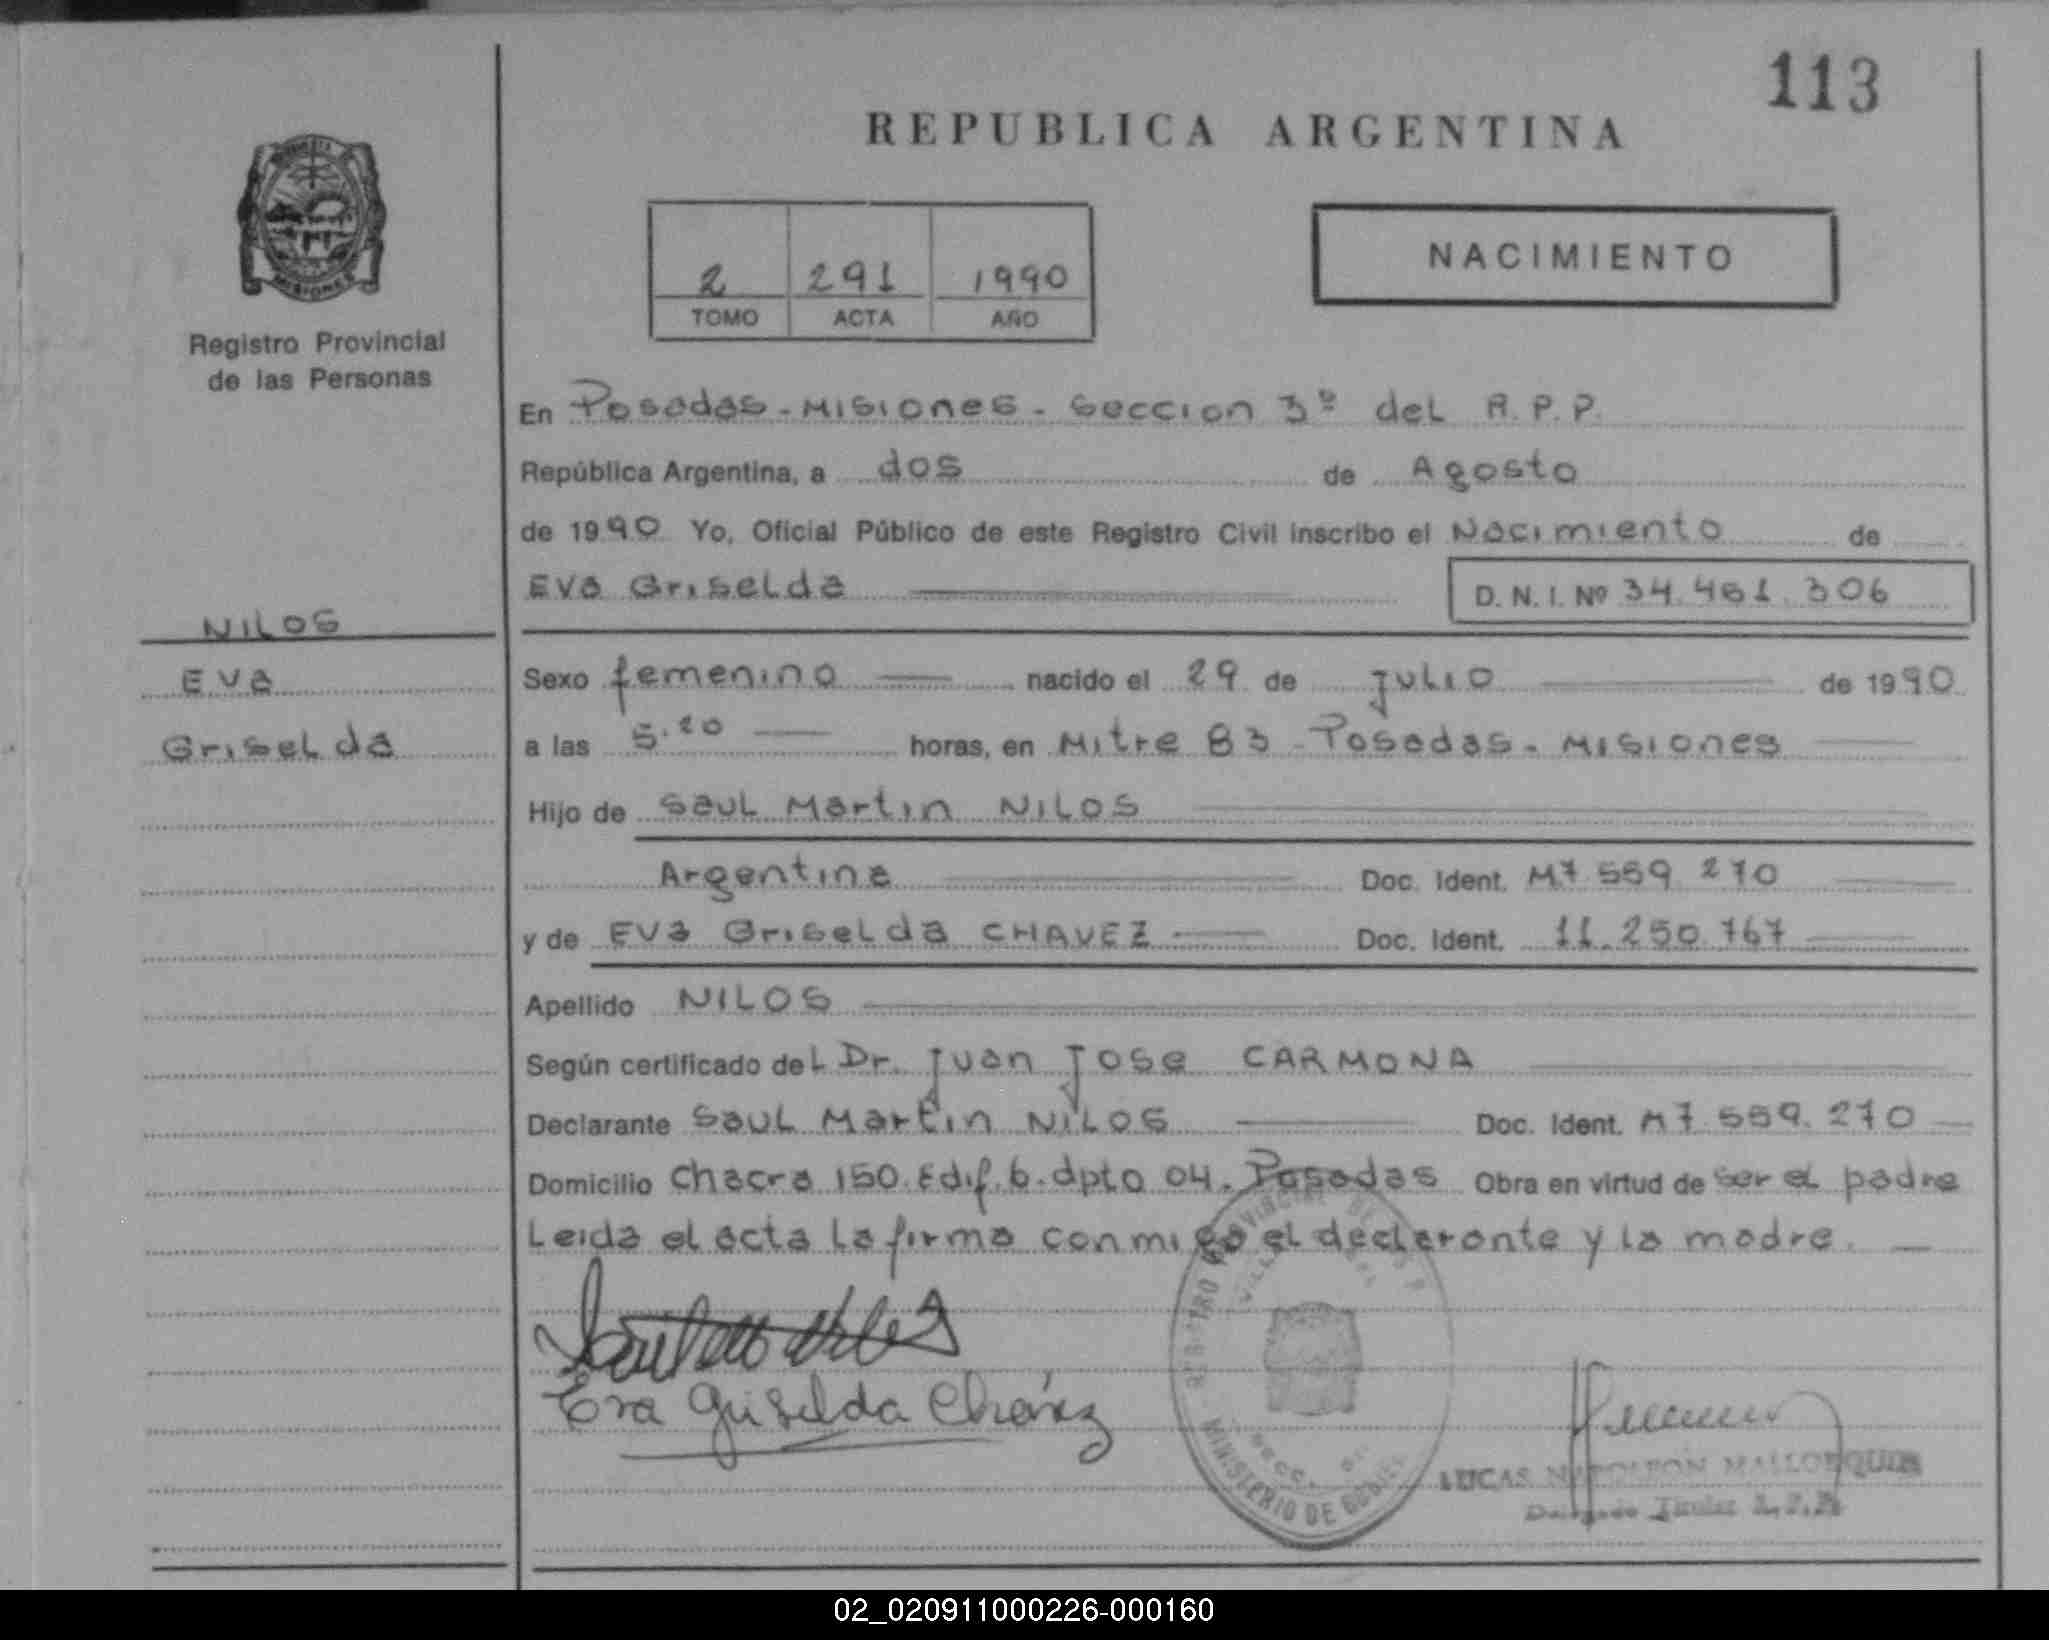 113
REPUBLICA ARGENTINA
2 291 1990
TOMO ACTA AÑO
NACIMIENTO
MISIONES
Registro Provincial
de las Personas
NILOS
Eva
Griselda
En Posadas - Misiones - Seccion 3º del R.P.P.
República Argentina, a dos de Agosto
de 1990 Yo, Oficial Público de este Registro Civil inscribo el Nacimiento de
Eva Griselda D. N. I. Nº 34.461.306
Sexo femenino nacido el 29 de julio de 1990
a las 5.20 horas, en Mitre 83 - Posadas - Misiones
Hijo de Saul Martin NILOS
Argentina Doc. Ident. M7 559 270
y de Eva Griselda CHAVEZ Doc. Ident. 11.250.767
Apellido NILOS
Según certificado del Dr. Juan Jose CARMONA
Declarante Saul Martin NILOS Doc. Ident. M7.559.270
Domicilio Chacra 150. Edif. 6. dpto 04. Posadas Obra en virtud de ser el padre
Leida el acta la firma conmigo el declarante y la madre.
Eva Griselda Chávez
MINISTERIO DE
LUCAS NAPOLEON MALLORQUIN
Delegado Titular
02_020911000226-000160